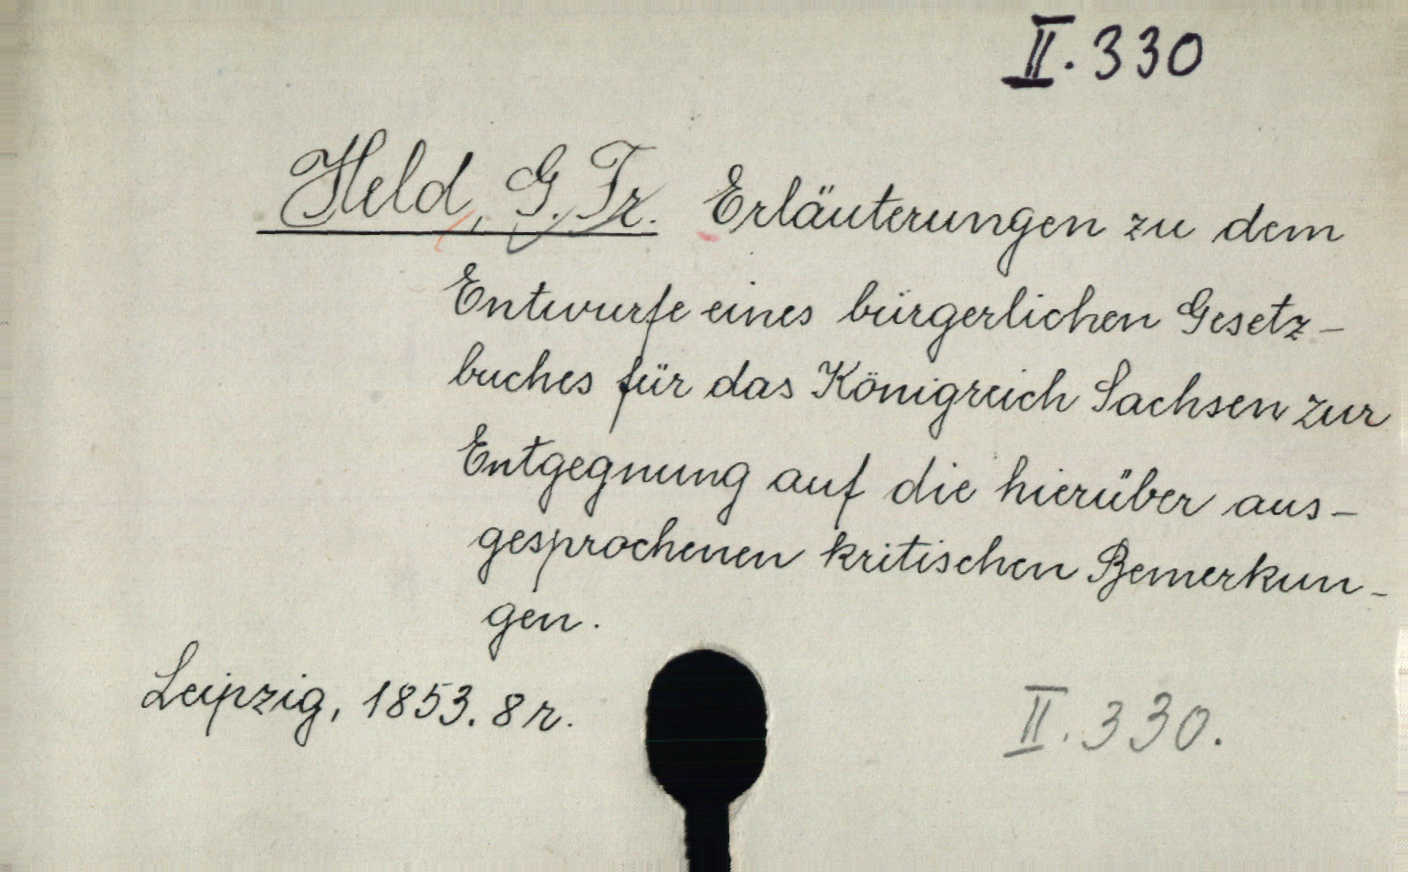 II. 330
Held, G. Fr. Erläuterungen zu dem
Entwurfe eines bürgerlichen Gesetz-
buches für das Königreich Sachsen zur
Entgegnung auf die hierüber aus-
gesprochenen kritischen Bemerkun-
gen.
Leipzig, 1853. 8 r.
II. 330.